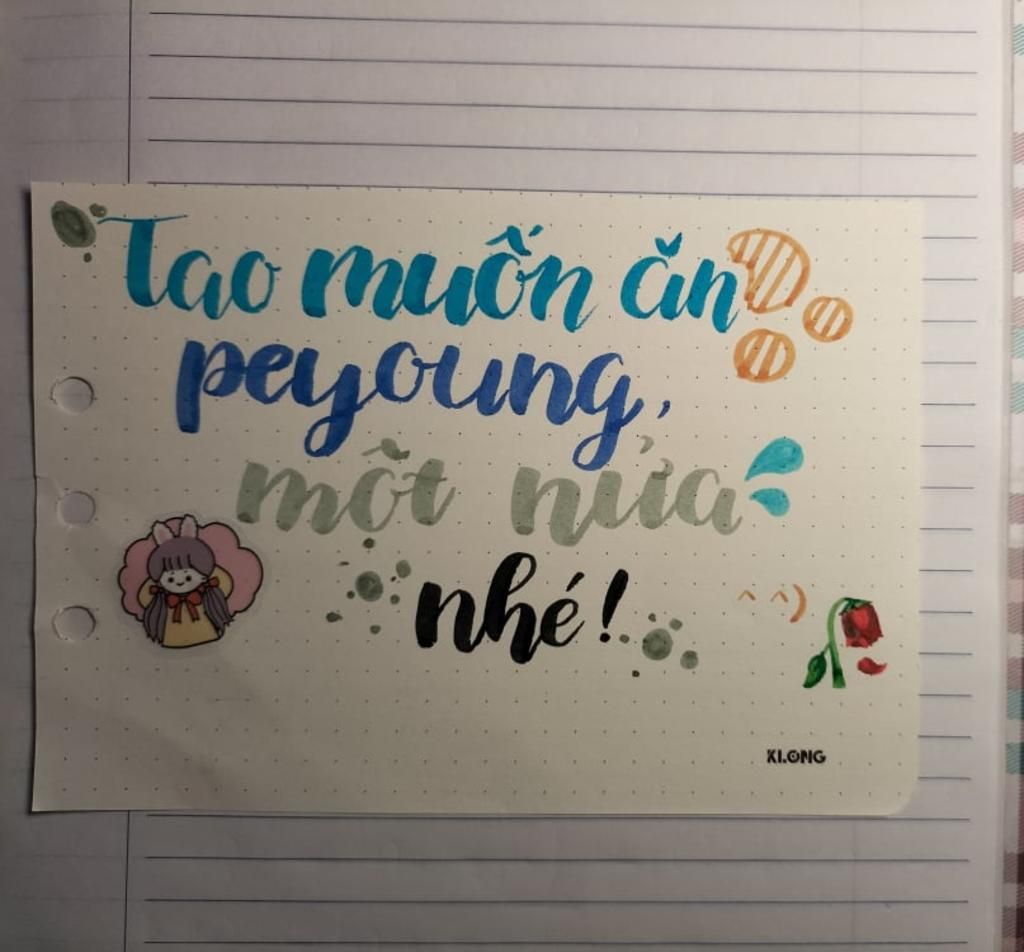 Tao muốn ăn
peyoung,
một nửa
nhé!
^ ^)
KLONG